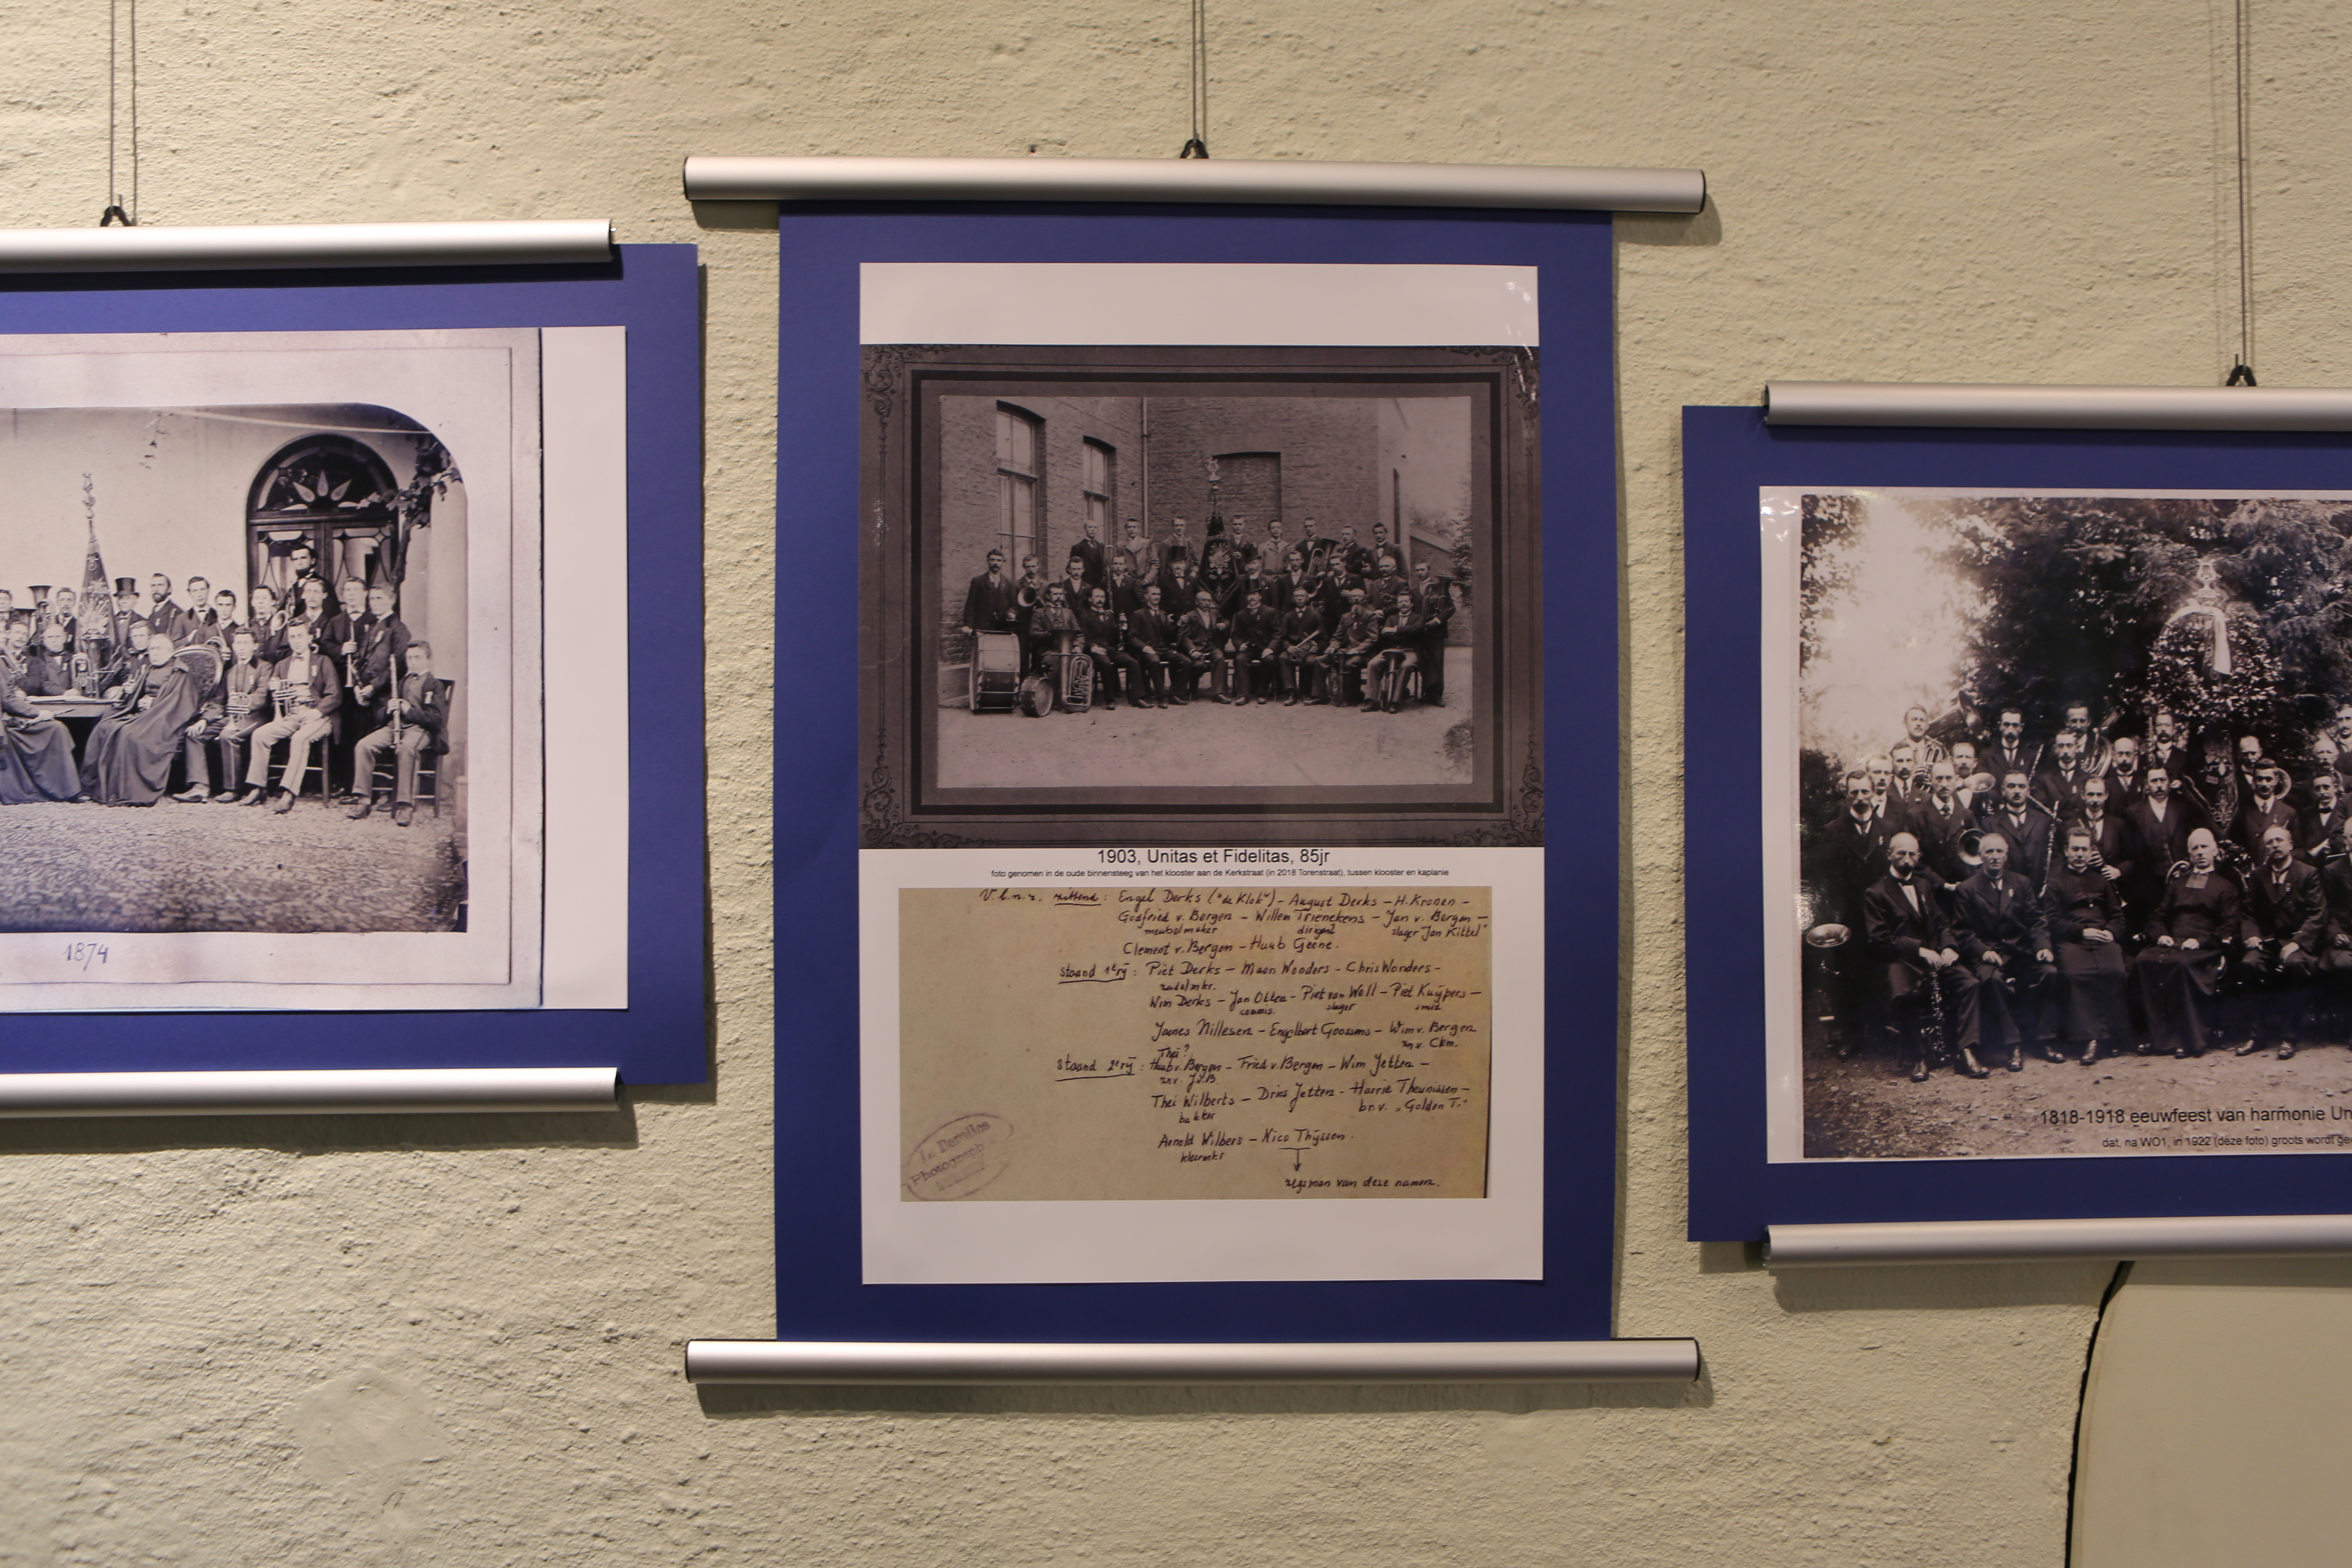 1874
1903, Unitas et Fidelitas, 85jr
foto genomen in de oude binnensteeg van het klooster aan de Kerkstraat (in 2018 Torenstraat), tussen klooster en kaplanie
V.l.n.r. zittend: Engel Derks ("de Klok") – August Derks – H. Kronen –
Godfried v. Bergen – Willem Trienekens – Jan v. Bergen –
meubelmaker dirigent slager "Jan Kittel"
Clement v. Bergen – Huub Geene.
staand 1e rij: Piet Derks – Maan Wonders – Chris Wonders –
zadelmkr.
Wim Derks – Jan Ottea – Piet van Well – Piet Kuijpers –
commis. slager smid
Jannes Nillesen – Engelbert Goossens – Wim v. Bergen
zn. v. Clem.
Thei?
Staand 2e rij: Huub v. Bergen – Fried v. Bergen – Wim Jetten –
zn.v. J.v.B.
Thei Wilberts – Dries Jetten – Harrie Theunissen –
bakker br. v. "Golden T."
Arnold Wilbers – Nico Thijssen.
kleermkr
zegsman van deze namen.
Photograph
1818-1918 eeuwfeest van harmonie Un
dat, na WO1, in 1922 (deze foto) groots wordt ge